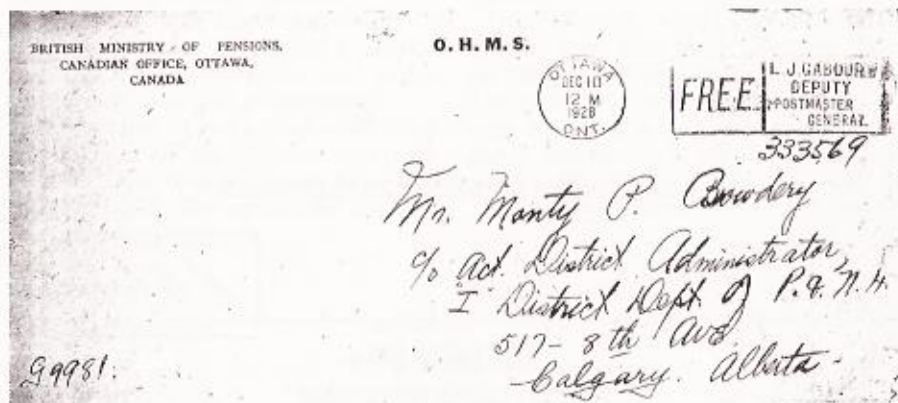 BRITISH MINISTRY OF PENSIONS,
CANADIAN OFFICE, OTTAWA,
CANADA
O. H. M. S.
OTTAWA
DEC 10
12 M
1928
ONT.
FREE
L. J. GABOURY
DEPUTY
POSTMASTER
GENERAL
333569
Mr. Monty P. Bowdery
c/o Act. District Administrator,
I District Dept. of P. & N. H.
517 - 8th Ave
Calgary. Alberta -
G9981.